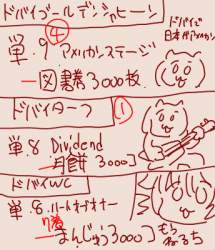 ドバイゴールデンシャヒーン
④
単.9 アメリカンステージ
図書券3000枚
ドバイで
日本代アメリカン
ドバイターフ
①
単.8 Dividend
月餅 3000コ
ドバイWC
単.8.ハートオブオナー
まんじゅう3000コ
もち